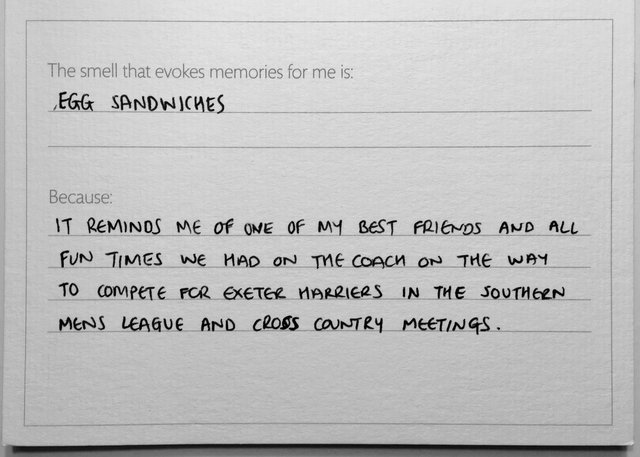 The smell that evokes memories for me is:
EGG SANDWICHES
Because:
IT REMINDS ME OF ONE OF MY BEST FRIENDS AND ALL
FUN TIMES WE HAD ON THE COACH ON THE WAY
TO COMPETE FOR EXETER HARRIERS IN THE SOUTHERN
MENS LEAGUE AND CROSS COUNTRY MEETINGS.